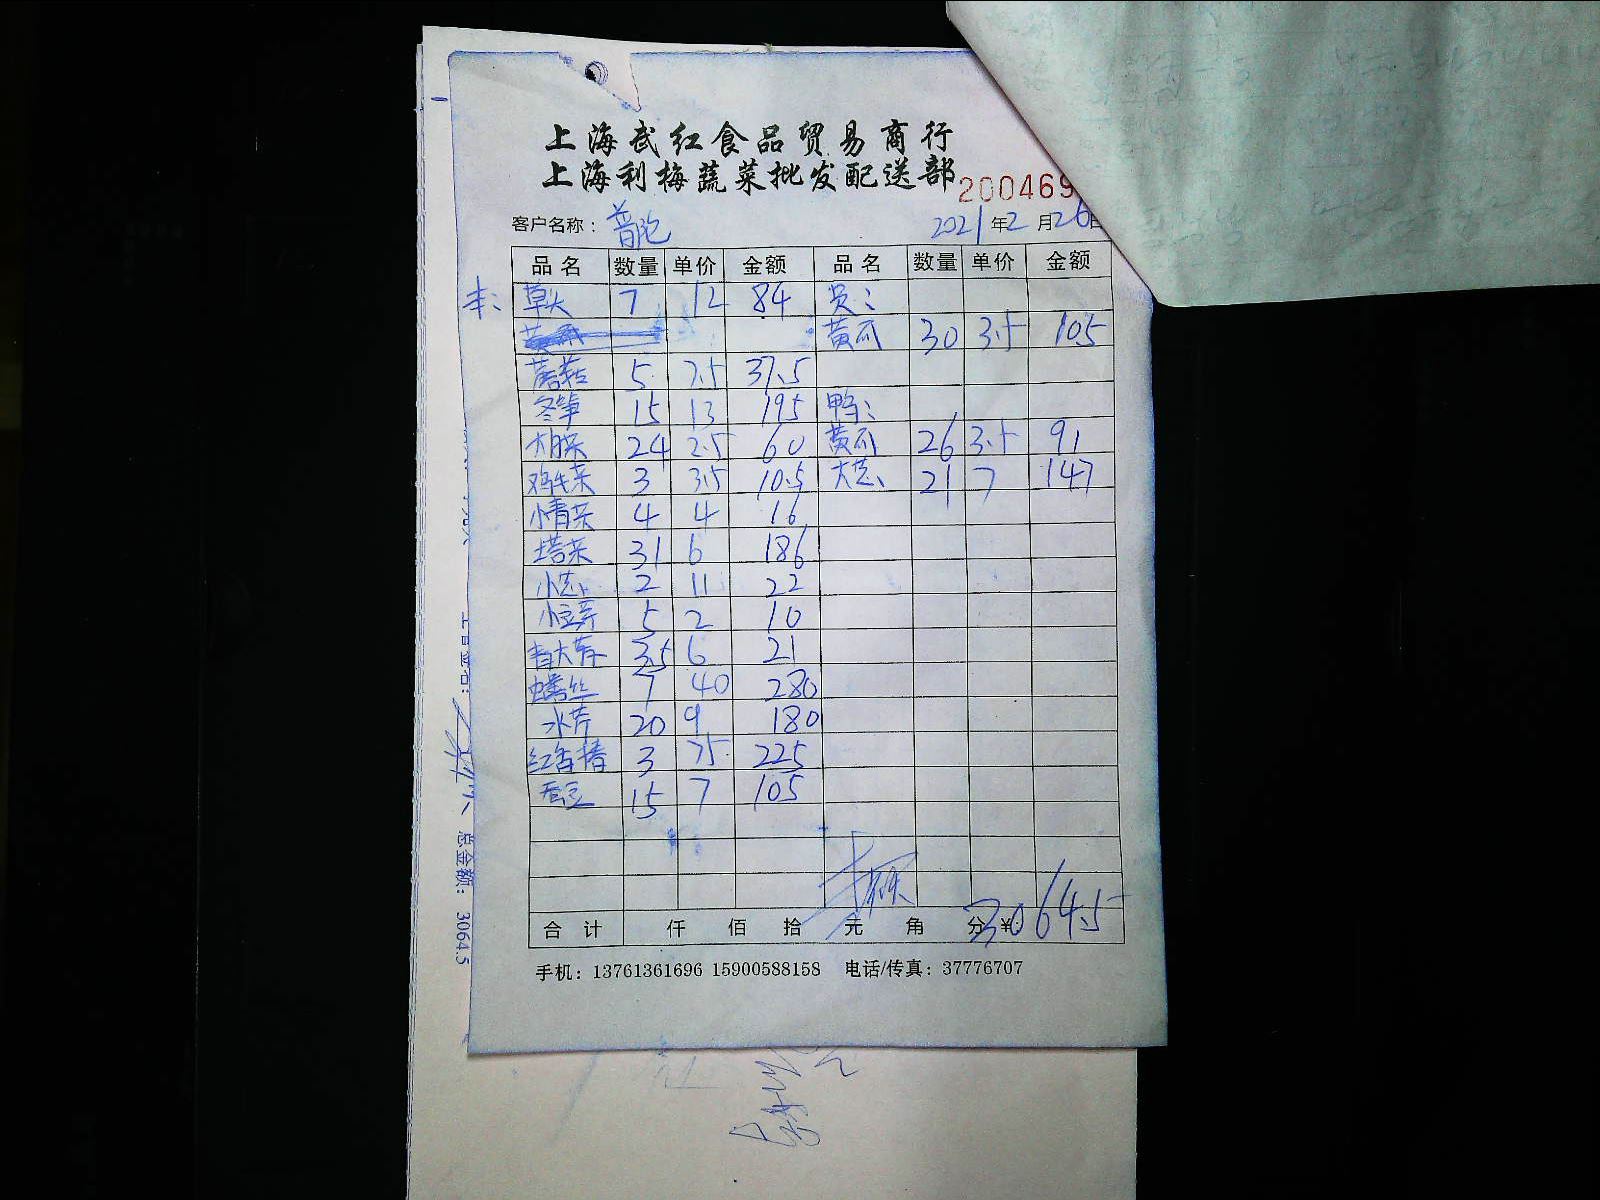 上海武红食品贸易商行
上海利梅蔬菜批发配送部
200469
客户名称：普陀 2021年2月26日
品名 数量 单价 金额 品名 数量 单价 金额
草头 7 12 84
黄瓜 30 3.5 105
蘑菇 5 7.5 37.5
冬笋 15 13 195 鸭：
24 2.5 60 黄瓜 26 3.5 91
鸡毛菜 3 3.5 10.5 大芯 21 7 147
小青菜 4 4 16
塔菜 31 6 186
小芯 2 11 22
小豆芽 5 2 10
青大蒜 3.5 6 21
鳝丝 7 40 280
水芹 20 9 180
红香椿 3 75 225
蚕豆 15 7 105
合计 仟 佰 拾 元 角 分¥ 3064.5
手机：13761361696 15900588158 电话/传真：37776707
总金额： 3064.5